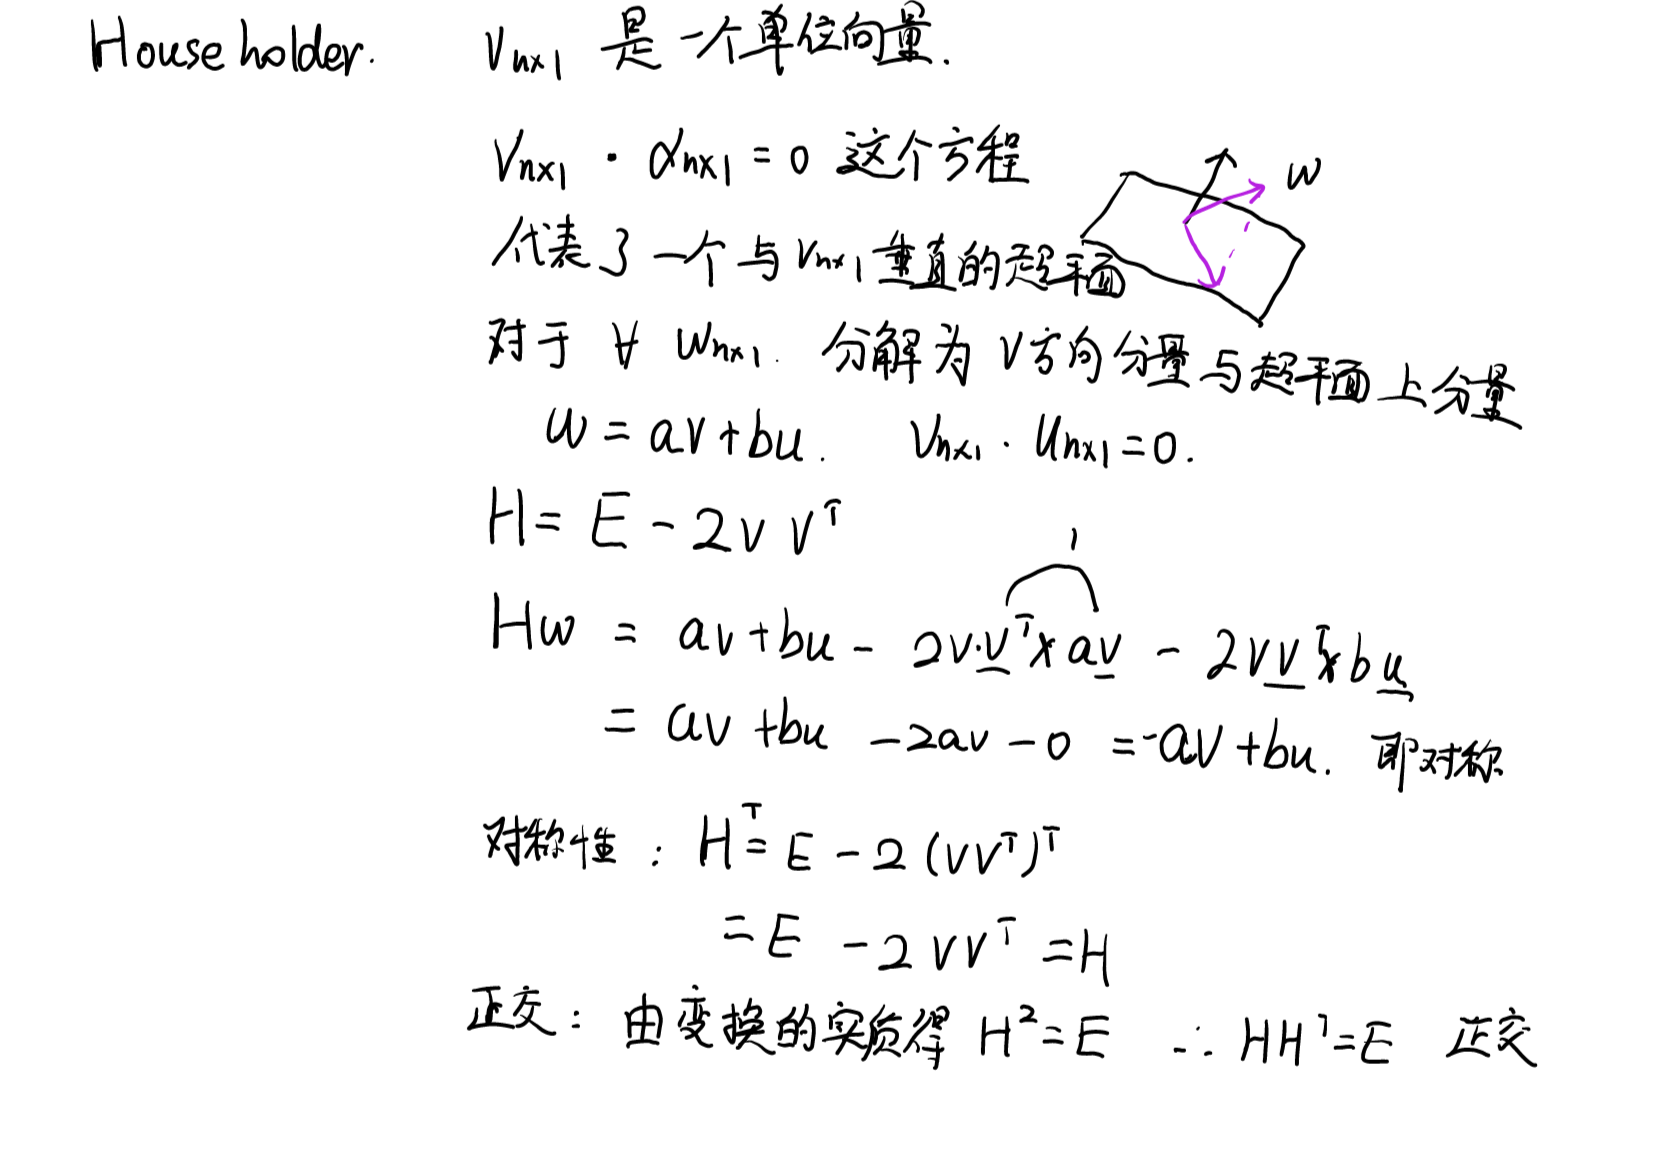 Householder. Vₙₓ₁ 是一个单位向量.
Vₙₓ₁ · αₙₓ₁ = 0 这个方程
w
代表了一个与 Vₙₓ₁ 垂直的超平面
对于 ∀ Wₙₓ₁. 分解为 V方向分量与超平面上分量
w = av + bu. Vₙₓ₁ · Uₙₓ₁ = 0.
H = E - 2 v vᵀ
1
Hw = av + bu - 2v·vᵀ × av - 2vvᵀ × bu
= av + bu - 2av - 0 = -av + bu. 即对称
对称性: Hᵀ = E - 2 (vvᵀ)ᵀ
= E - 2 v vᵀ = H
正交: 由变换的实质得 H² = E ∴ HHᵀ = E 正交